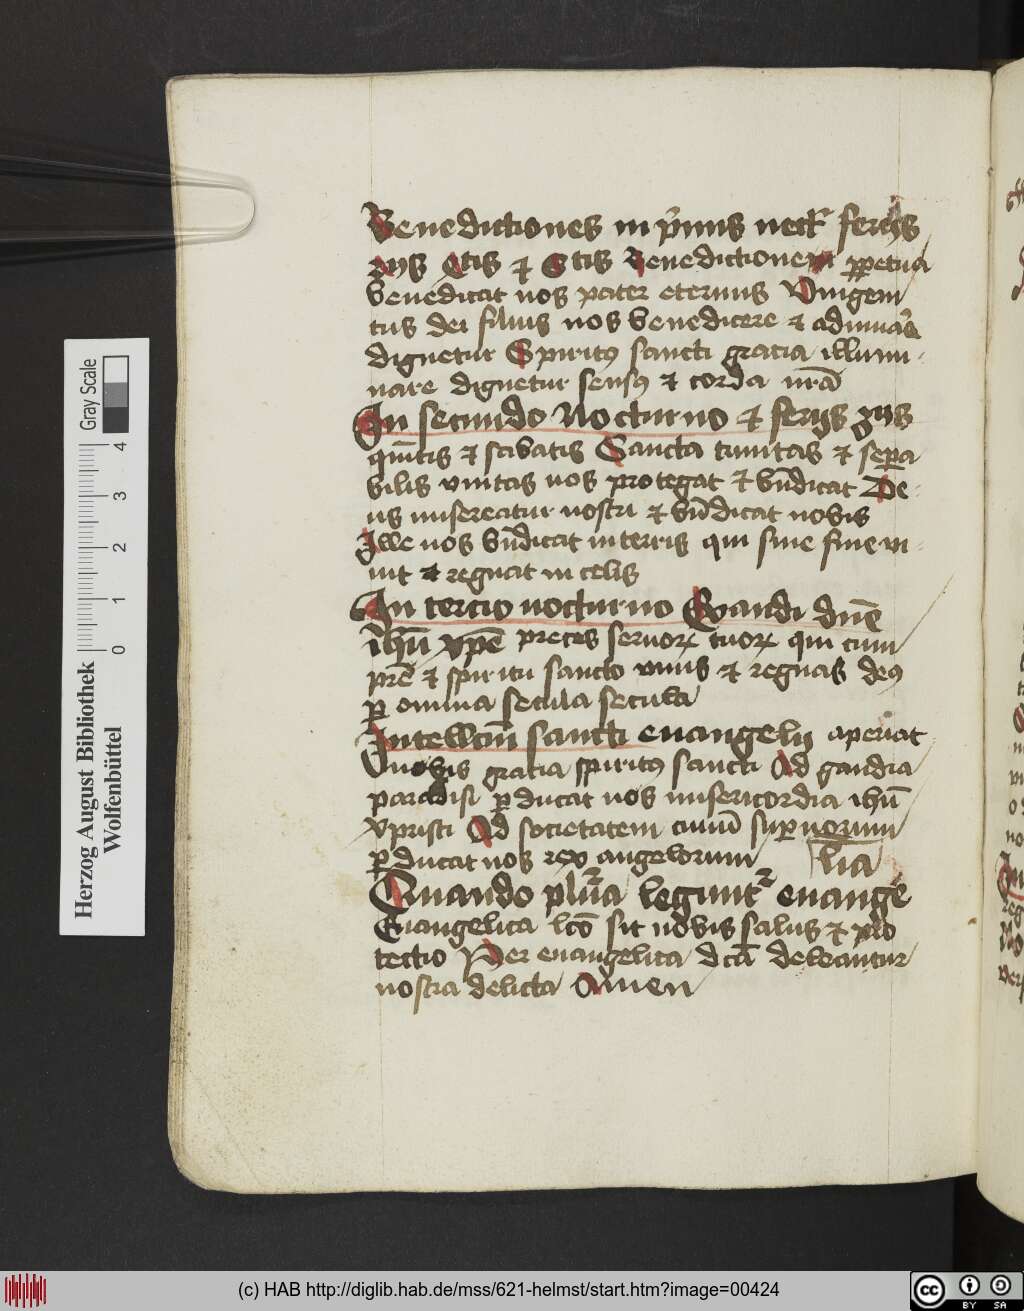 Benedictiones in p̃mis noct᷑ ferijs
ijs Ctis ⁊ Stis Benedictionem ꝑpetua
benedicat nos pater eternus Vnigeni
tus dei filius nos benedicere ⁊ adiuuar̃
dignetur Spiritꝯ sancti gracia illumi-
nare dignetur sensꝯ ⁊ corda nr̃a
In secundo Nocturno ⁊ ferijs
quītis ⁊ sabatis Sancta trinitas ⁊ seꝑa
bilis vnitas nos protegat ⁊ bñdicat De-
us misereatur nostri ⁊ bñdicat nobis
Ille nos bñdicat in terris qui sine fine vi-
uit ⁊ regnat in celis
In tercio nocturno Exaudi dñe
ihũ xp̃e preces seruoꝝ tuoꝝ qui cum
pr̃e ⁊ spiritu sancto viuis ⁊ regnas deꝯ
ꝑ omnia secula seculor
Intellcũ sancti euangelij aperiat
nobis gracia spiritꝯ sancti Ad gaudia
paradisi ꝑducat nos misericordia ihũ
xpristi Ad societatem ciuiũ suꝑnorum
ꝑducat nos rex angelorum lia
Quando plur̃a leguntᷣ euange
Euangelica lc̃o sit nobis salus ⁊ pro
tectio Per euangelica dc̃a deleantur
nostra delicta Amen
Herzog August Bibliothek
Wolfenbüttel
0 1 2 3 4
Gray Scale
(c) HAB http://diglib.hab.de/mss/621-helmst/start.htm?image=00424
cc BY SA